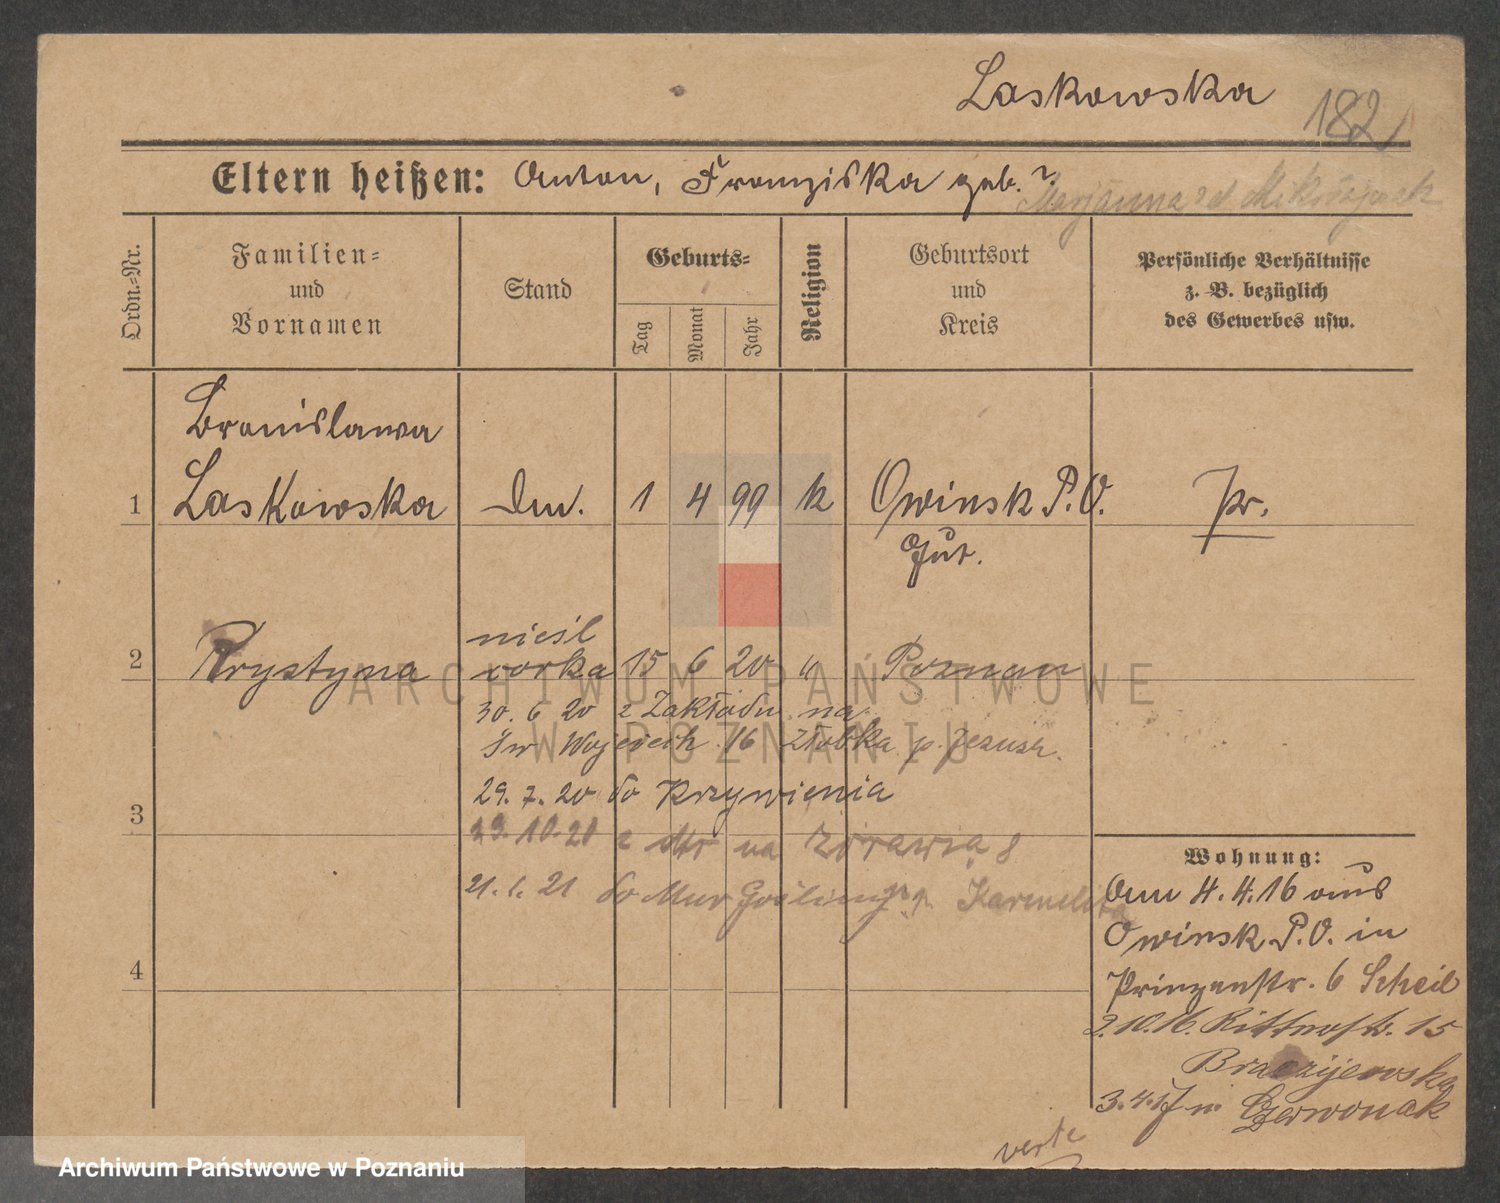 Laskowska
182
Eltern heißen: Anton, Franziska geb. ?
Marjanna
Ordn.-Nr.
Familien- und Vornamen
Stand
Geburts-
Tag
Monat
Jahr
Religion
Geburtsort und Kreis
Persönliche Verhältnisse
z. B. bezüglich
des Gewerbes usw.
Bronislawa
1 Laskowska 1 4 99 k Owinsk P.O. Pr.
Gut.
nieśl
2 Krystyna córka 15 6 20 " Poznan
30. 6 20 z Zakładu na
Św Wojciech 16 Żłobka p. Jezusa.
29. 7. 20 do Krzywienia
3
29. 10. 20 z na Żórawia 8
21. 1. 21 do Mur Goślina p. Karmelita
4
Wohnung:
Am 4. 4. 16 aus
Owinsk P.O. in
Prinzenstr. 6 Scheil
2. 10. 16. 15
3. 4. 17 n. Czerwonak
verte
ARCHIWUM PAŃSTWOWE
W POZNANIU
Archiwum Państwowe w Poznaniu